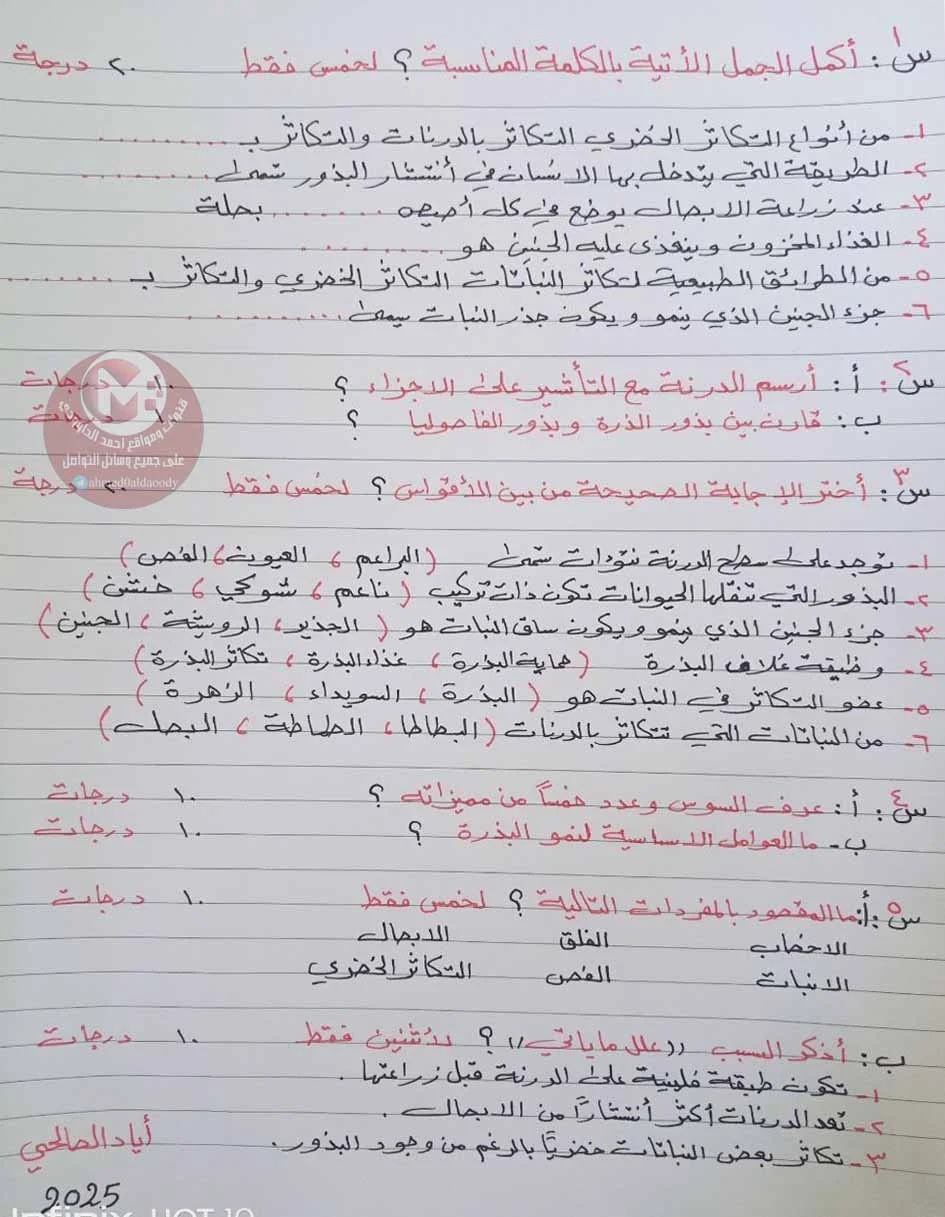 س١: أكمل الجمل الأتية بالكلمة المناسبة ؟ لخمس فقط ٢٠ درجة
١- من أنواع التكاثر الخضري التكاثر بالدرنات والتكاثر بـ ............
٢- الطريقة التي يتدخل بها الانسان في أنتشار البذور تسمى .........
٣- عند زراعة الابصال يوضع في كل أصيص ........ بصلة
٤- الغذاء المخزون ويتغذى عليه الجنين هو ..........
٥- من الطرائق الطبيعية لتكاثر النباتات التكاثر الخضري والتكاثر بـ .........
٦- جزء الجنين الذي ينمو ويكون جذر النبات يسمى ..........
س٢: أ: أرسم الدرنة مع التأشير على الاجزاء ؟ ١٠ درجات
ب: قارن بين بذور الذرة وبذور الفاصوليا ؟ ١٠ درجات
س٣: أختر الإجابة الصحيحة من بين الأقواس ؟ لخمس فقط ٢٠ درجة
١- توجد على سطح الدرنة نتوءات تسمى (البراعم ، العيون ، الفص)
٢- البذور التي تنقلها الحيوانات تكون ذات تركيب (ناعم ، شوكي ، خشن)
٣- جزء الجنين الذي ينمو ويكون ساق النبات هو (الجذير ، الرويشة ، الجنين)
٤- وظيفة غلاف البذرة (حماية البذرة ، غذاء البذرة ، تكاثر البذرة)
٥- عضو التكاثر في النبات هو (البذرة ، السويداء ، الزهرة)
٦- من النباتات التي تتكاثر بالدرنات (البطاطا ، الطماطة ، البصل)
س٤: أ: عرف السوس وعدد خمساً من مميزاته ؟ ١٠ درجات
ب- ما العوامل الاساسية لنمو البذرة ؟ ١٠ درجات
س٥: أ: ما المقصود بالمفردات التالية ؟ لخمس فقط ١٠ درجات
الاخصاب الفلق الابصال
الانبات الفص التكاثر الخضري
ب: أذكر السبب ((علل ماياتي)) ؟ لاثنين فقط ١٠ درجات
١- تكون طبقة فلينية على الدرنة قبل زراعتها .
٢- تعد الدرنات أكثر أنتشاراً من الابصال .
٣- تكاثر بعض النباتات خضرياً بالرغم من وجود البذور .
أياد الصالحي
2025
قنوات ومواقع احمد الداوودي
على جميع وسائل التواصل
@ahmed0aldaoody
Infinix HOT 10